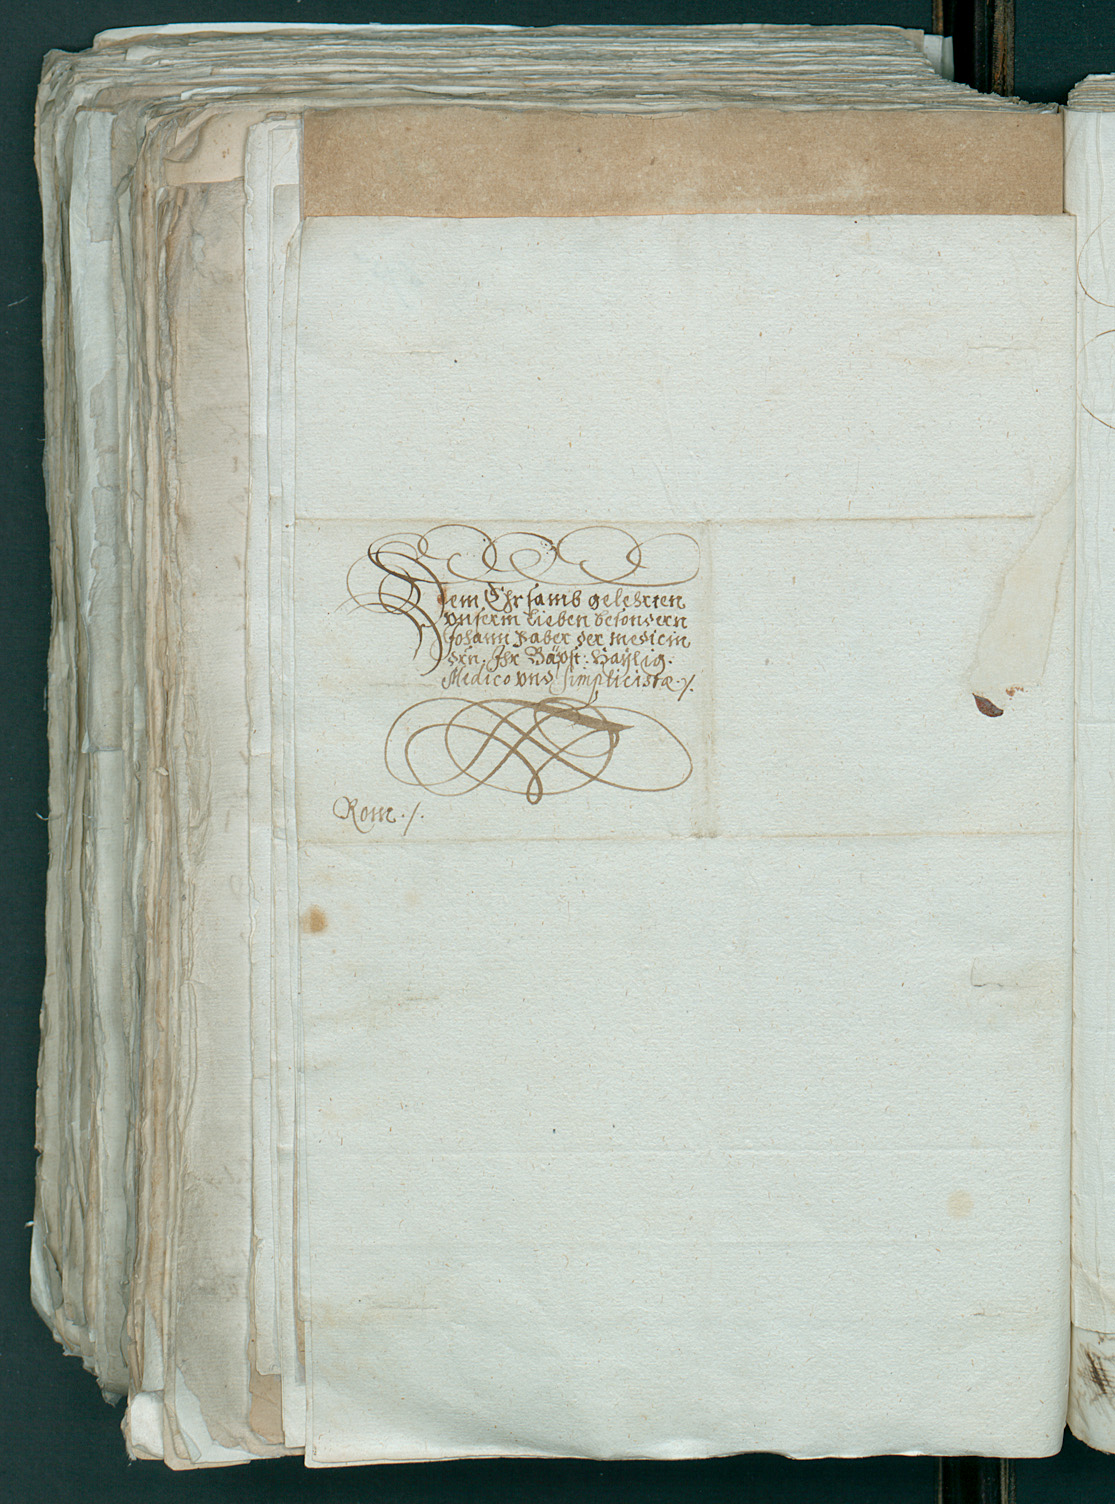 Dem Ehrsamb gelehrten
vnserm Lieben besondern
Johann Faber der medicin
drn. Ihr Bäpst: Haylig:
Medico vnd Simplicistæ ./.
Rom ./.